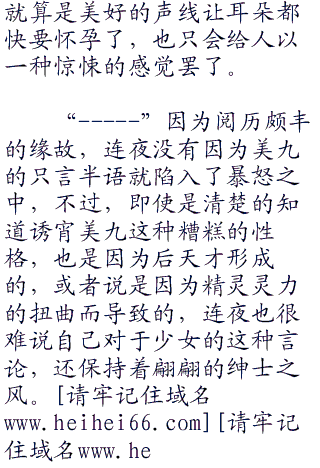 就算是美好的声线让耳朵都
快要怀孕了，也只会给人以
一种惊悚的感觉罢了。
“-----”因为阅历颇丰
的缘故，连夜没有因为美九
的只言半语就陷入了暴怒之
中，不过，即使是清楚的知
道诱宵美九这种糟糕的性
格，也是因为后天才形成
的，或者说是因为精灵灵力
的扭曲而导致的，连夜也很
难说自己对于少女的这种言
论，还保持着翩翩的绅士之
风。[请牢记住域名
www.heihei66.com][请牢记
住域名www.he